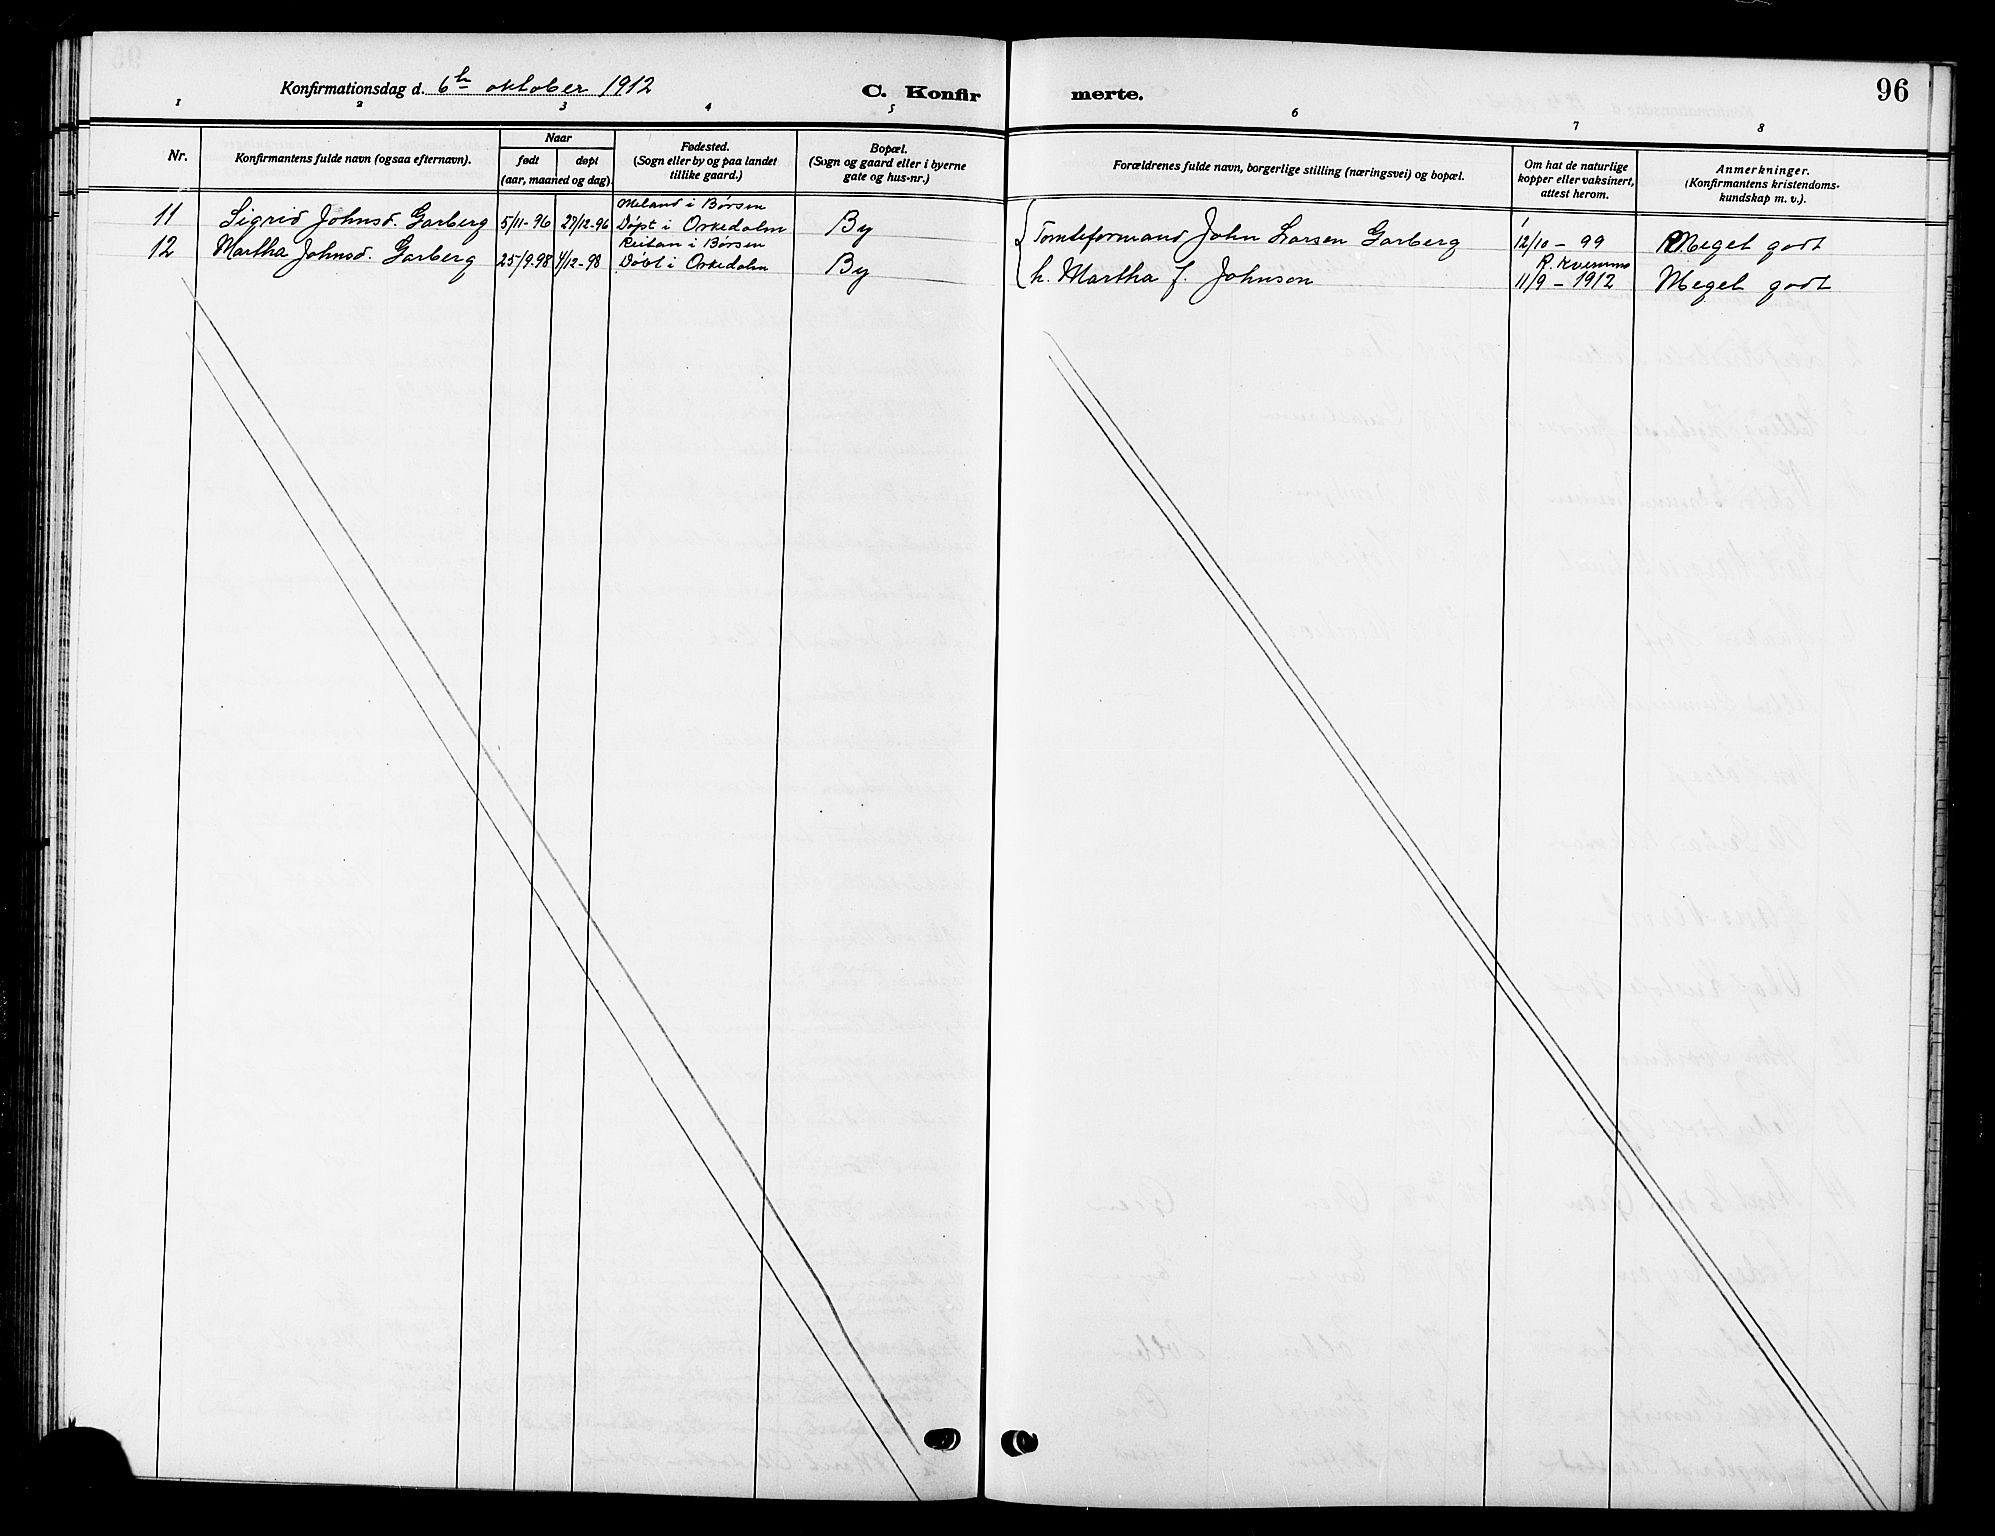 96
Konfirmationsdag d. 6te oktober 1912
C. Konfirmerte.
1 2 3 4 5 6 7 8
Nr.
Konfirmantens fulde navn (ogsaa efternavn).
Naar
født døpt
(aar, maaned og dag).
Fødested.
(Sogn eller by og paa landet
tillike gaard.)
Bopæl.
(Sogn og gaard eller i byerne
gate og hus-nr.)
Forældrenes fulde navn, borgerlige stilling (næringsvei) og bopæl.
Om hat de naturlige
kopper eller vaksinert,
attest herom.
Anmerkninger.
(Konfirmantens kristendoms-
kundskap m. v.).
Meland i Børsen
11 Sigrid Johnsd. Garberg 5/11-96 27/12-96 Døpt i Orkedalen By Tomteformand John Larsen Garberg 12/10 - 99 Meget godt
Reitan i Børsen
12 Martha Johnsd. Garberg 25/9-98 4/12-98 Døbt i Orkedalen By h. Martha f. Johnson 11/9 - 1912 Meget godt